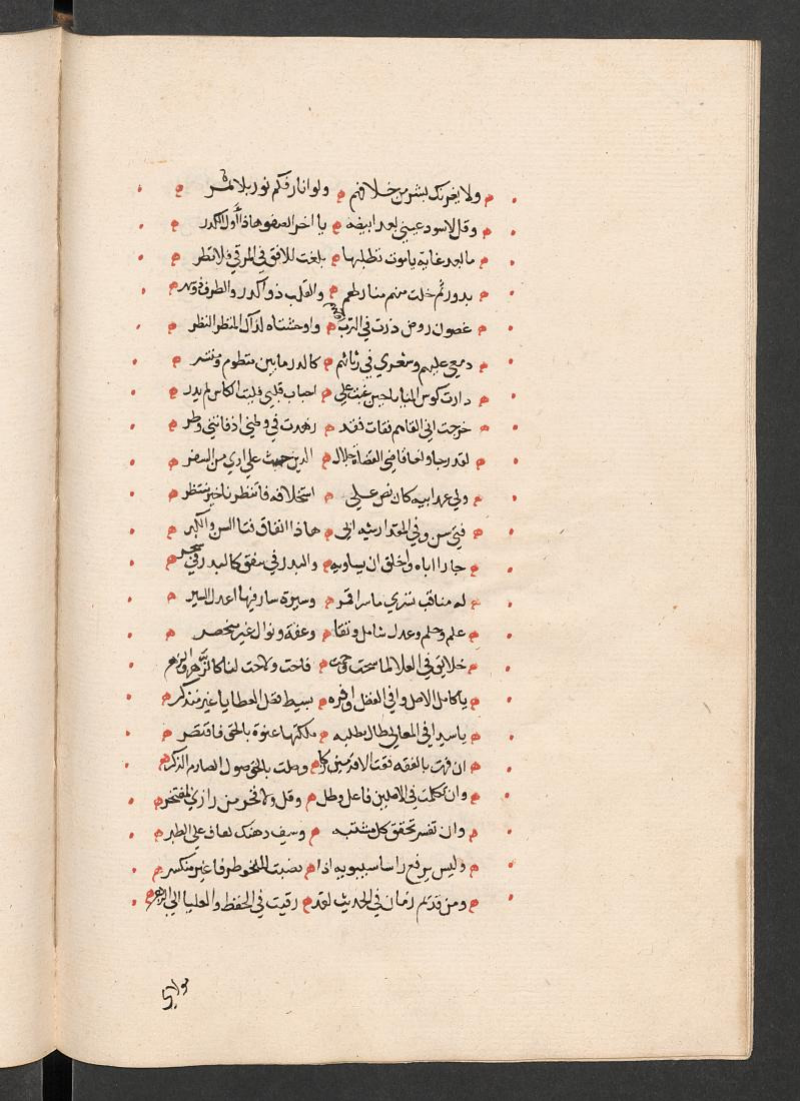 ولا يغرنك بشر من خلافهم ولو انار فكم نور بلا ثمر
وقل لاسود عيني بعد ابيضه يا اخر الصفو هاذا أول الكدر
ما بعد غاية يا موت تطلبها بلغت للافق في المرقى فلا تطر
بدور تم خلت منهم منازلهم والقلب ذو كدر والطرف ذو
غصون روض ذرت في الترب واوحشتاه لذاك المنظر النظر
دمعي عليهم وشعري في رثائهم كالدر ما بين منظوم ومنتثر
دارت كوس المنايا حين غبت على احباب قلبي فليت الكاس لم يدر
خرجت الى القاهم ففات فقد زهدت في وطني اذ فاتني وطر
لقد رجاو قاضي القضاة جلال الدين حيث على اري من السفر
ولي عهد ابيه كان نص على استخلافه فانتظرنا خير منتظر
فتى سن وفي المقدار شيه ابى هاذا اتفاق فتا السن والكبر
جارا اباه واخلق ان يساويه والبدر في شفق كالبدر في سحر
له مناقب تسري ما سرا قمر وسيرة سار فيها اعدل السير
علم وحلم وعدل شامل وتقا وعفة ونوال غير منحصر
خلائق في العلا لما سمت وحمت فاحت ولاحت لنا كالزهر والزهر
يا كامل الاصل وافي الفضل وافره بسيط فضل العطايا غير منذكر
يا سيدا في المعالي طال مطلبه ملكتها عنوة بالحق فاقتصر
ان فهت بالفقه فقت الاقدمين وكم وصلت بالحق صول الصارم الذكر
وان تكلمت في الاصلين فاعل وطل وقل ولا فخر من رازي لمفتخر
وان تفسر تحقق كل مشتبه وسيف ذهنك على الطبر
وليس يرفع راسا سيبويه اذا نصبت للنحو طرفا غير منكسر
ومن قديم زمان في الحديث لقد رقيت في الحفظ والعليا الى الزهر
مولاي